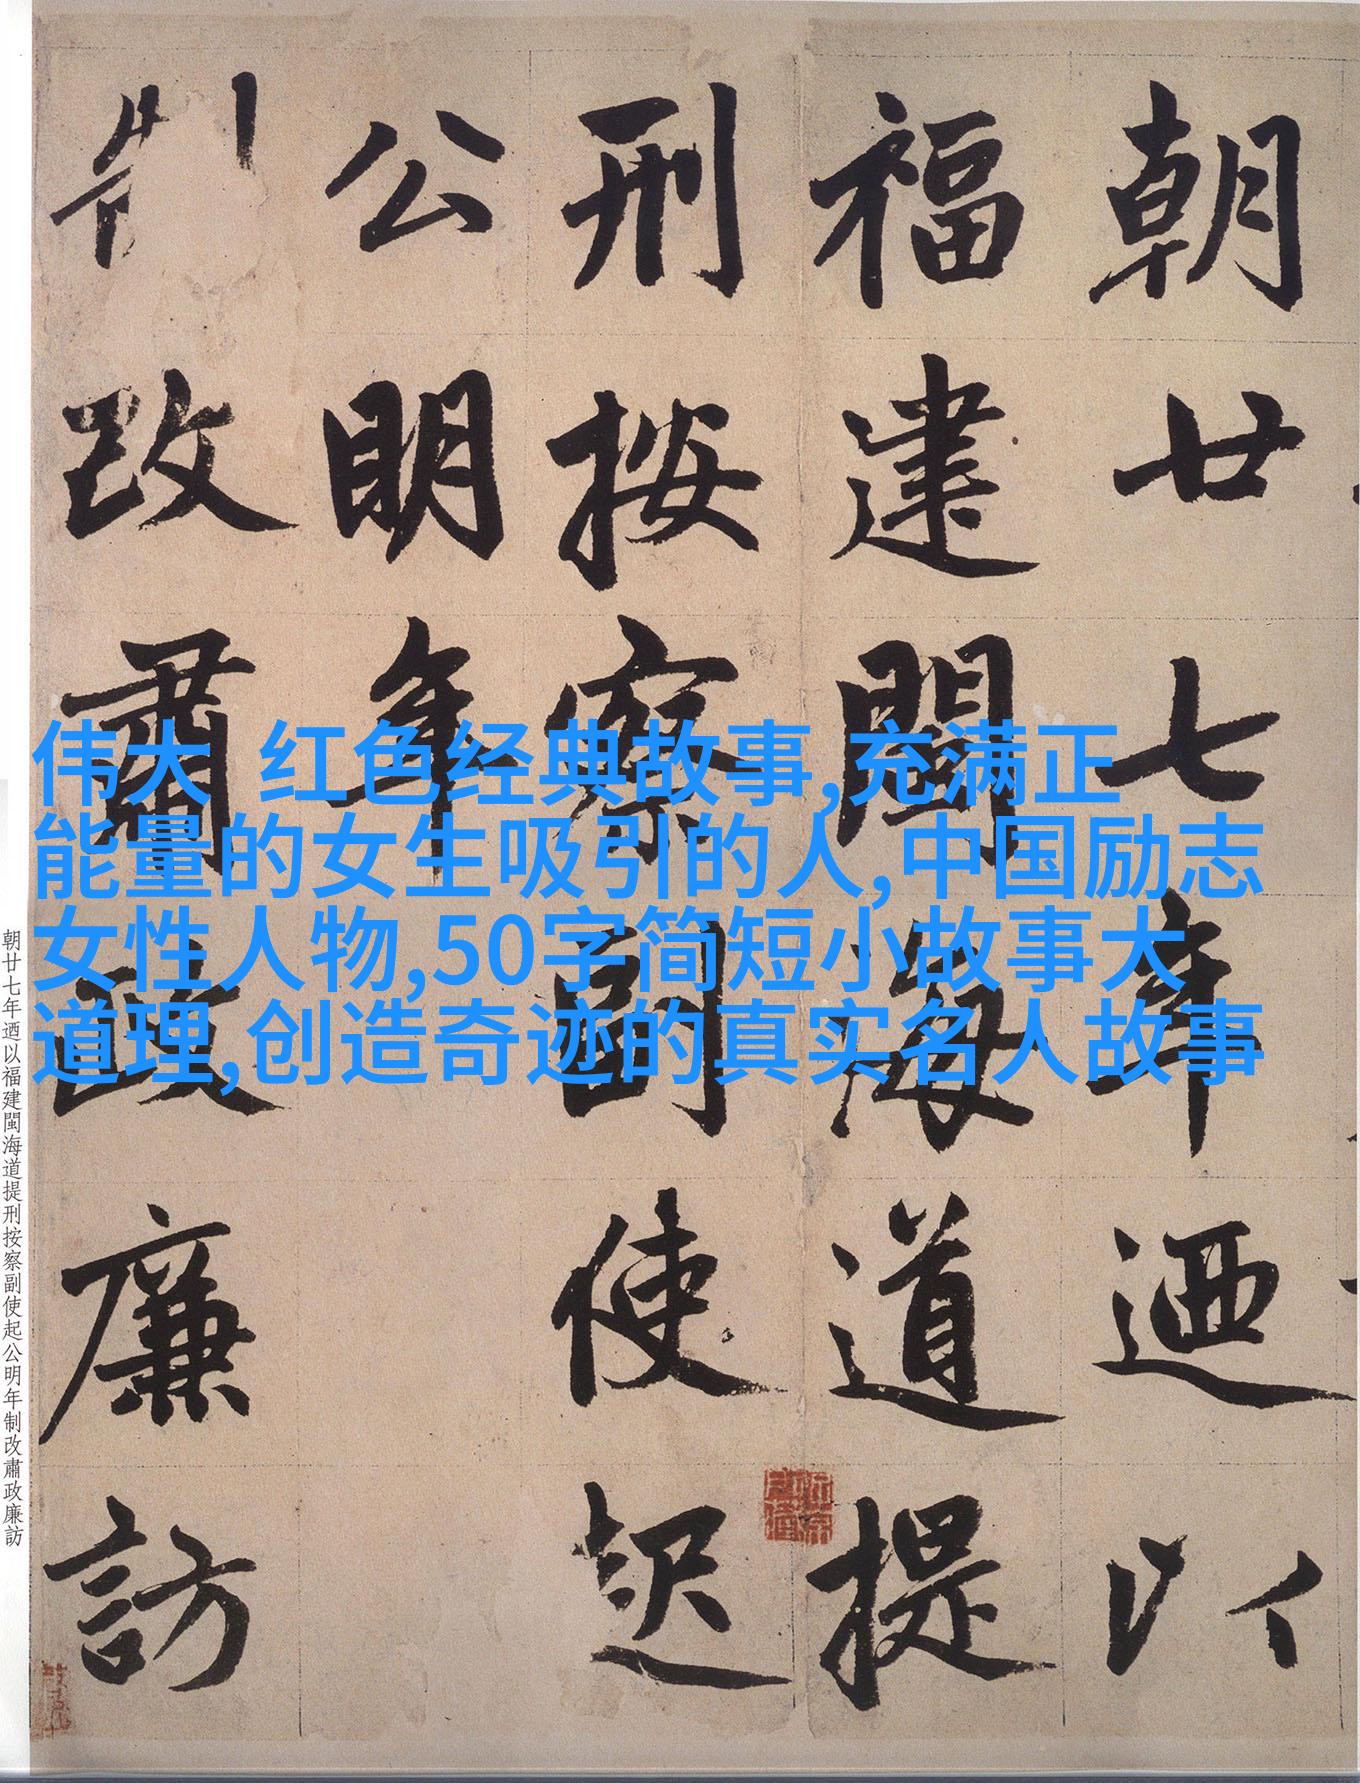 朝廿七年迺以
福建閩海道提
刑按察副使起
公明年
制改肅政廉訪
伟大 红色经典故事,充满正
能量的女生吸引的人,中国励志
女性人物,50字简短小故事大
道理,创造奇迹的真实名人故事
朝廿七年迺以福建閩海道提刑按察副使起公明年制改肅政廉訪